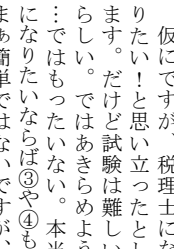 仮にですが、税理士にな
りたい！と思い立ったとし
ます。だけど試験は難しい
らしい。ではあきらめよう
…ではもったいない。本当
になりたいならば③や④も
まぁ簡単ではないですが、